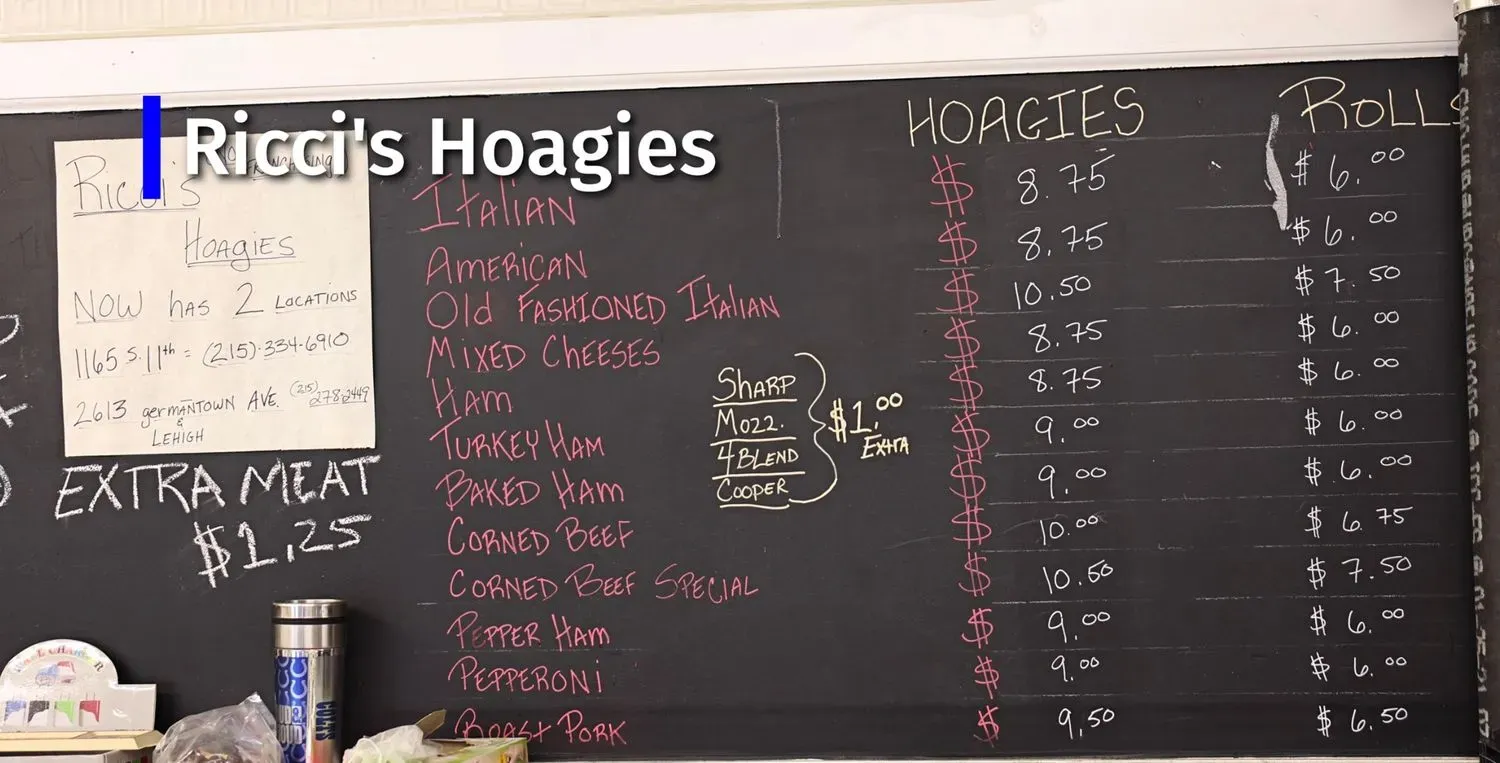 Ricci's Hoagies
Ricci's
Hoagies
Now has 2 Locations
1165 S. 11th = (215)·334-6910
2613 germantown Ave. (215) 278-2449
&
Lehigh
EXTRA MEAT
$1.25
HOAGIES ROLLS
Italian $ 8.75 $ 6.00
American $ 8.75 $ 6.00
Old Fashioned Italian $ 10.50 $ 7.50
Mixed Cheeses $ 8.75 $ 6.00
Ham $ 8.75 $ 6.00
Turkey Ham $ 9.00 $ 6.00
Baked Ham $ 9.00 $ 6.00
Corned Beef $ 10.00 $ 6.75
Corned Beef Special $ 10.50 $ 7.50
Pepper Ham $ 9.00 $ 6.00
Pepperoni $ 9.00 $ 6.00
Roast Pork $ 9.50 $ 6.50
Sharp
Mozz.
4 Blend
Cooper
$1.00
Extra